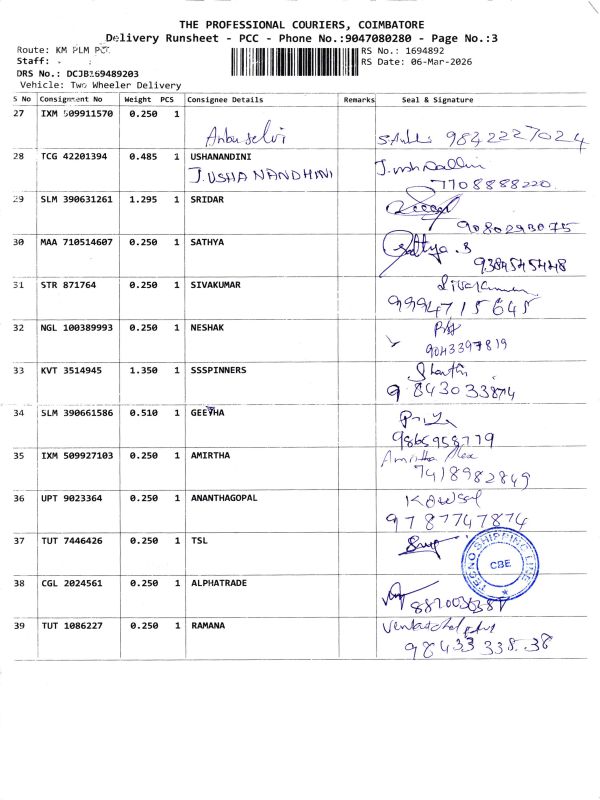 THE PROFESSIONAL COURIERS, COIMBATORE
Delivery Runsheet - PCC - Phone No.:9047080280 - Page No.:3
Route: KM PLM PCC
RS No.: 1694892
Staff:
RS Date: 06-Mar-2026
DRS No.: DCJB269489203
Vehicle: Two Wheeler Delivery
S No Consignment No Weight PCS Consignee Details Remarks Seal & Signature
27 IXM 509911570 0.250 1
Anbuselvi 9842227024
28 TCG 42201394 0.485 1 USHANANDINI
J.USHA NANDHINI 7708888220
29 SLM 390631261 1.295 1 SRIDAR
9080293075
30 MAA 710514607 0.250 1 SATHYA Sathya.S
9384545448
31 STR 871764 0.250 1 SIVAKUMAR Sivakumar
9994715645
32 NGL 100389993 0.250 1 NESHAK
9043397819
33 KVT 3514945 1.350 1 SSSPINNERS Shanthi
9843033874
34 SLM 390661586 0.510 1 GEETHA Priya
9865958779
35 IXM 509927103 0.250 1 AMIRTHA Amirtha
7418982849
36 UPT 9023364 0.250 1 ANANTHAGOPAL Kowsal
9787747874
37 TUT 7446426 0.250 1 TSL
TECNO SHIPPING LINE
CBE
38 CGL 2024561 0.250 1 ALPHATRADE
39 TUT 1086227 0.250 1 RAMANA
98433 33538